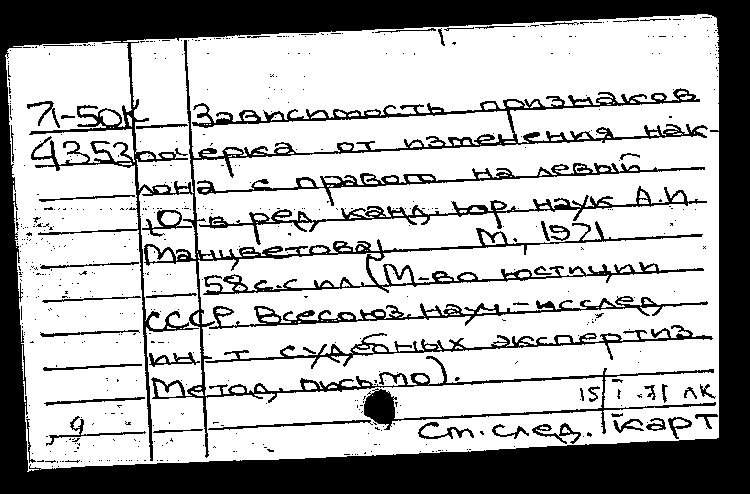 1.
71-50К Зависимость признаков
4353 почерка от изменения нак-
лона с правого на левый.
[Отв. ред. канд. юр. наук А.И.
Манцветова]. М., 1971
58 с. с ил. (М-во юстиции
СССР. Всесоюз. науч.-исслед
ин-т судебных экспертиз.
Метод. письмо).
15/I-71 ЛК
9 См. след. карт